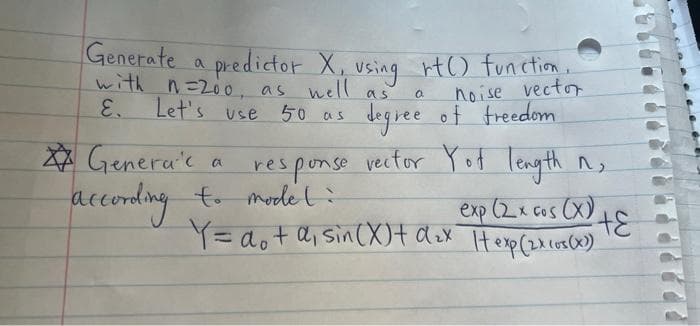 Generate a predictor X, using rt() function,
with n=200, as well as a noise vector
ε. Let's use 50 as degree of freedom
✡ Generate a response vector Y of length n,
according to model:
Y = α₀ + α₁ sin(X) + α₂x exp(2x cos(X)) / 1+exp(2x cos(x)) + ε